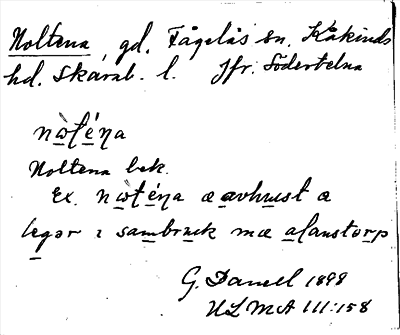 Noltena, gd. Fågelås sn. Kåkinds
hd. Skarab. l. Jfr. Södertelna
nȯ̤téna
Noltena bek.
Ex. nòténa æ avhust æ
legər ı sambruk mæ alanstorp
G. Danell 1898
ULMA 111:158